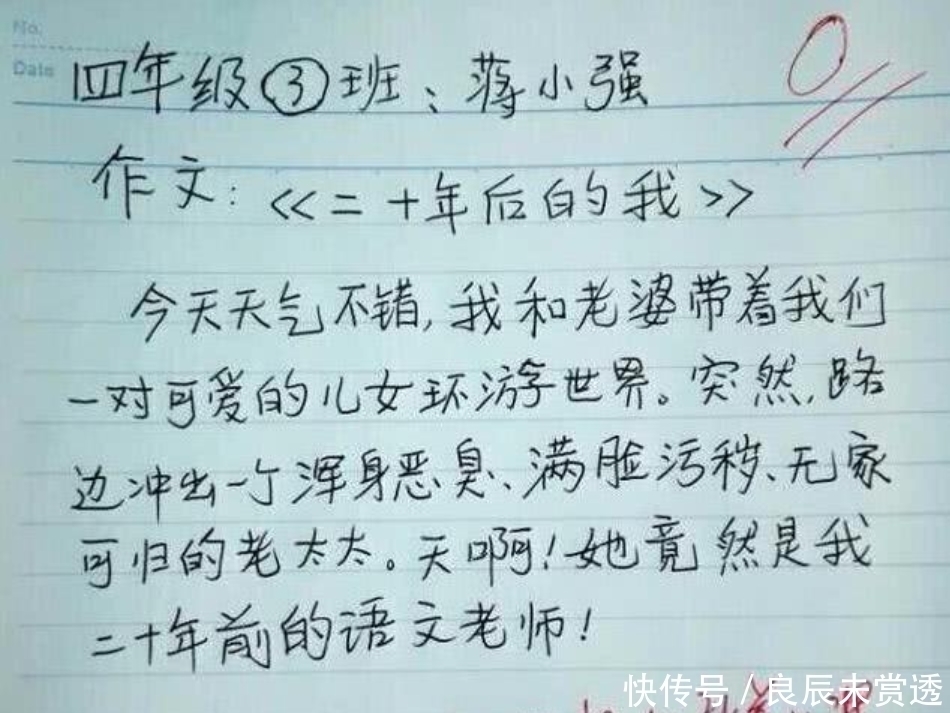 No.
Date
0
四年级③班:蒋小强
作文:<<二十年后的我>>
今天天气不错,我和老婆带着我们
一对可爱的儿女环游世界。突然,路
边冲出一个浑身恶臭、满脸污秽、无家
可归的老太太。天啊!她竟然是我
二十年前的语文老师!
快传号/良辰未赏透